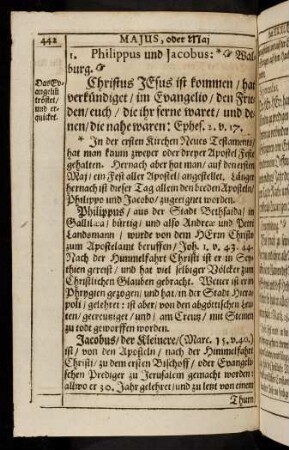 442 MAJUS, oder Maj
1. Philippus und Jacobus: * Wal-
burg.
Christus JEsus ist kommen / hat
verkündiget / im Evangelio / den Frie-
den / euch / die ihr ferne waret / und de-
nen / die nahe waren: Ephes. 2. v. 17.
Das Ev-
angelium
tröstet /
und er-
quicket.
* In der ersten Kirchen Neues Testaments /
hat man kaum zweyer oder dreyer Apostel Feste
gehalten. Hernach aber hat man / auf den ersten
Maj / ein Fest aller Apostel / angestellet. Länger
hernach ist dieser Tag allein den beeden Aposteln /
Philippo und Jacobo / zugeeignet worden.
Philippus / aus der Stadt Bethsaida / in
Galilæa / bürtig / und also Andreæ und Petri
Landsmann / wurde von dem HErrn Christo
zum Apostelamt beruffen / Joh. 1. v. 43. 44.
Nach der Himmelfahrt Christi ist er in Scy-
thien gereist / und hat viel selbiger Völcker zum
Christlichen Glauben gebracht. Weiter ist er in
Phrygien gezogen / und hat / in der Stadt Hiera-
poli / gelehrt: ist aber / von den abgöttischen Leu-
ten / gecreutziget / und / am Creutz / mit Steinen
zu todt geworffen worden.
Jacobus / der Kleinere / (Marc. 15. v. 40.)
ist / von den Aposteln / nach der Himmelfahrt
Christi / zu dem ersten Bischoff / oder Evangeli-
schen Prediger zu Jerusalem gemacht worden:
allwo er 30. Jahr gelehret / und zu letzt von einem
Thurn